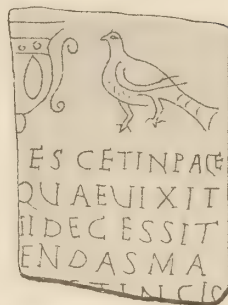 ES CET IN PACE
QUAE VIXIT
II DECESSIT
ENDAS MA